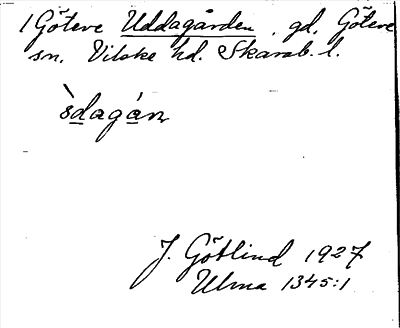 1 Göteve Uddagården, gd. Göteve
sn. Vilske hd. Skarab. l.
s̀dagán
J. Götlind 1927
Ulma 1345:1